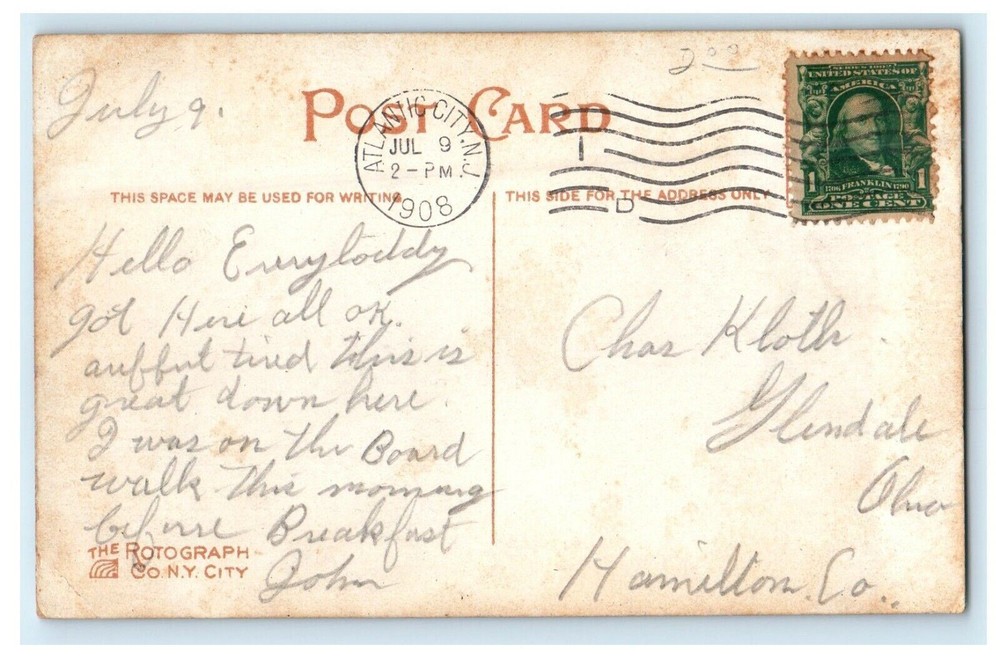 July 9.
POST CARD
200
ATLANTIC CITY, N.J.
JUL 9
2-PM
1908
I
D
SERIES 1902
UNITED STATES OF
AMERICA
1 1
1706 FRANKLIN 1790
POSTAGE
ONE CENT
THIS SPACE MAY BE USED FOR WRITING
THIS SIDE FOR THE ADDRESS ONLY
Hello Everyboddy
got Here all ok.
auffful tired this is
great down here.
I was on the Board
walk this morning
before Breakfast
John
Chas Kloth.
Glendale
Ohio
Hamilton Co..
THE ROTOGRAPH
CO. N.Y. CITY